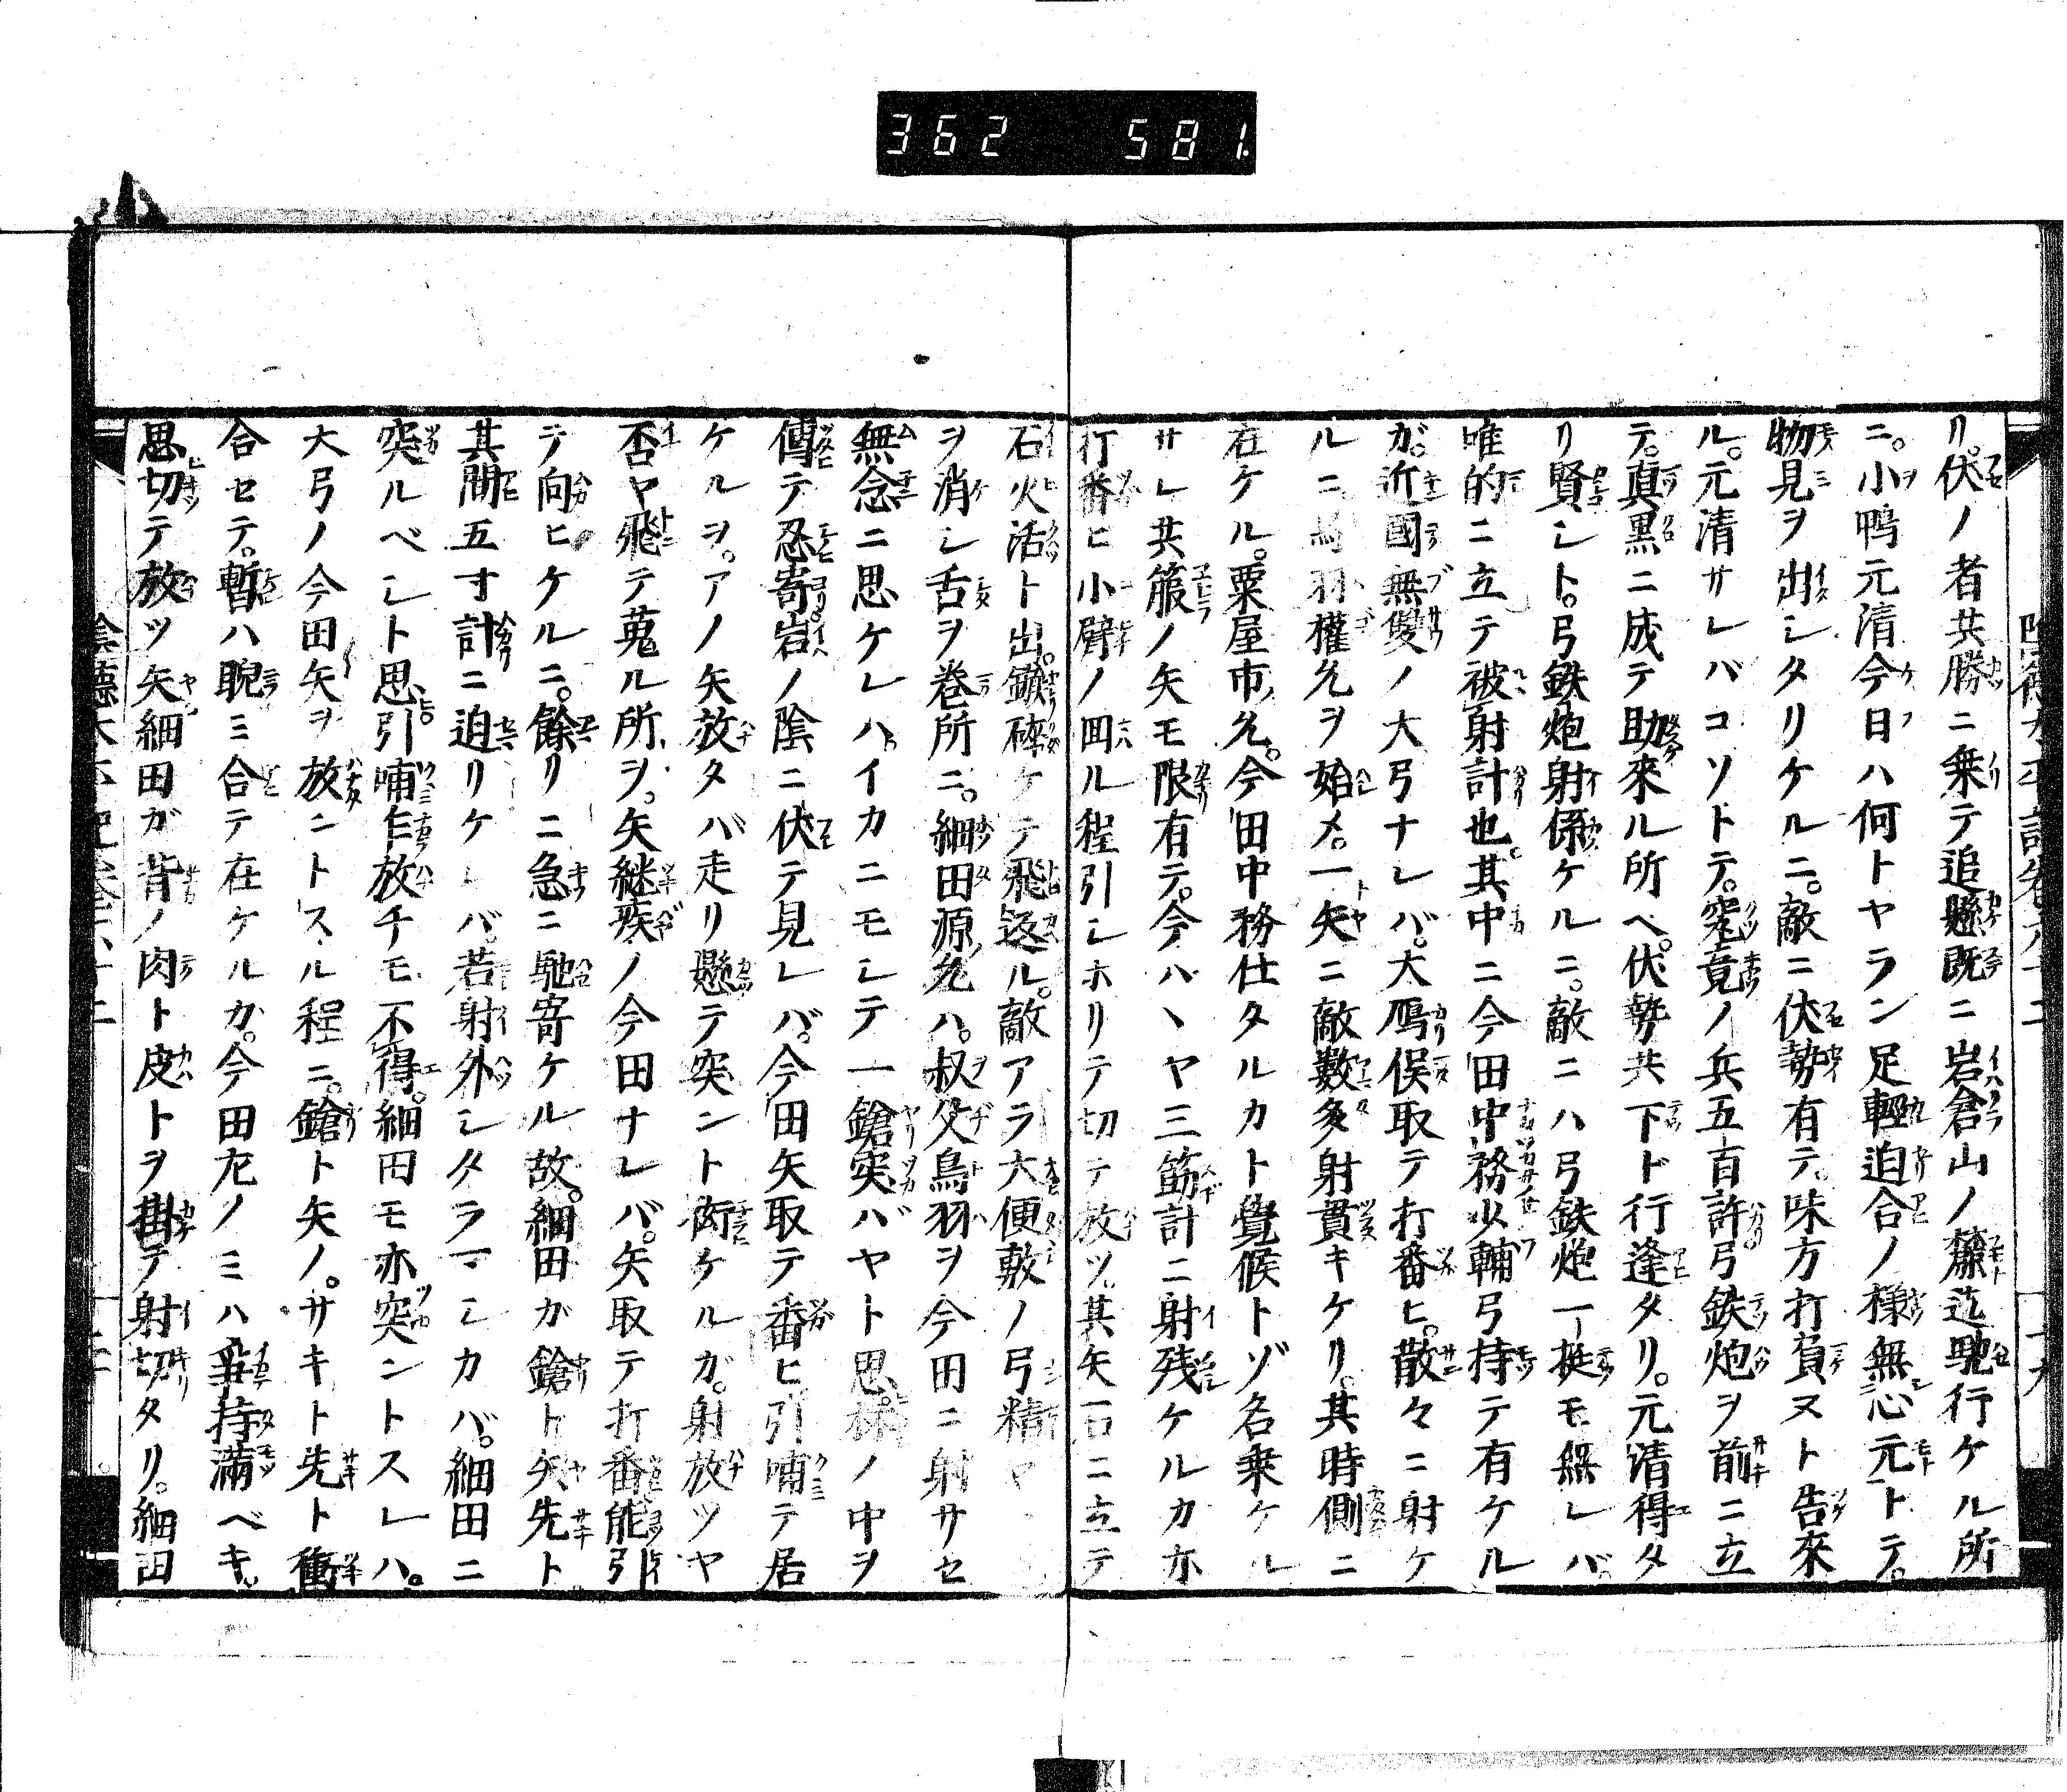 362 581
リ。伏ノ者共勝ニ乗テ追懸既ニ岩倉山ノ麓迄馳行ケル所
ニ。小鴨元清今日ハ何トヤラン足輕迫合ノ様無心元トテ。
物見ヲ出シタリケルニ。敵ニ伏勢有テ。味方打負ヌト告來
ル。元清サレバコソトテ。究竟ノ兵五百許弓鉄炮ヲ前ニ立
テ。真黒ニ成テ助來ル所ヘ。伏勢共下ド行逢タリ。元清得タ
リ賢シト。弓鉄炮射係ケルニ。敵ニハ弓鉄炮一挺モ無レバ。
唯的ニ立テ被射計也。其中ニ今田中務少輔弓持テ有ケル
ガ。近國無雙ノ大弓ナレバ。大鴈俣取テ打番ヒ。散々ニ射ケ
ルニ鳥羽權允ヲ始メ。一矢ニ敵數多射貫キケリ。其時側ニ
在ケル。粟屋市允。今田中務仕タルカト覺候トゾ名乗ケル
サレ共箙ノ矢モ限有テ。今ハヽヤ三筋計ニ射残ケルカ亦
行番ヒ小臂ノ囬ル程引シホリテ切テ放ツ。其矢石ニ立テ
石火活ト出。鏃碎ケテ飛返ル。敵アラ大便敷ノ弓精ヤ
ヲ消シ舌ヲ巻所ニ。細田源允ハ。叔父鳥羽ヲ今田ニ射サセ
無念ニ思ケレハ。イカニモシテ一鎗突バヤト思。林ノ中ヲ
傳テ忍寄岩ノ陰ニ伏テ見レバ。今田矢取テ番ヒ引哺テ居
ケルヲ。アノ矢放タバ走リ懸テ突ント㔟ケルガ。射放ツヤ
否ヤ飛テ蒐ル所ヲ。矢継疾ノ今田ナレバ。矢取テ打番能引
テ向ヒケルニ。餘リニ急ニ馳寄ケル故。細田カ鎗ト矢先ト
其間五寸計ニ迫リケレバ。若射外シタラマシカバ。細田ニ
突ルベシト思。引哺乍放チモ不得。細田モ亦突ントスレハ。
大弓ノ今田矢ヲ放ントスル程ニ。鎗ト矢ノ。サキト先ト衝
合セテ。暫ハ睨ミ合テ在ケルカ。今田尢ノミハ爭持満ベキ。
思切テ放ツ矢細田ガ背ノ肉ト皮トヲ掛テ射切タリ。細田